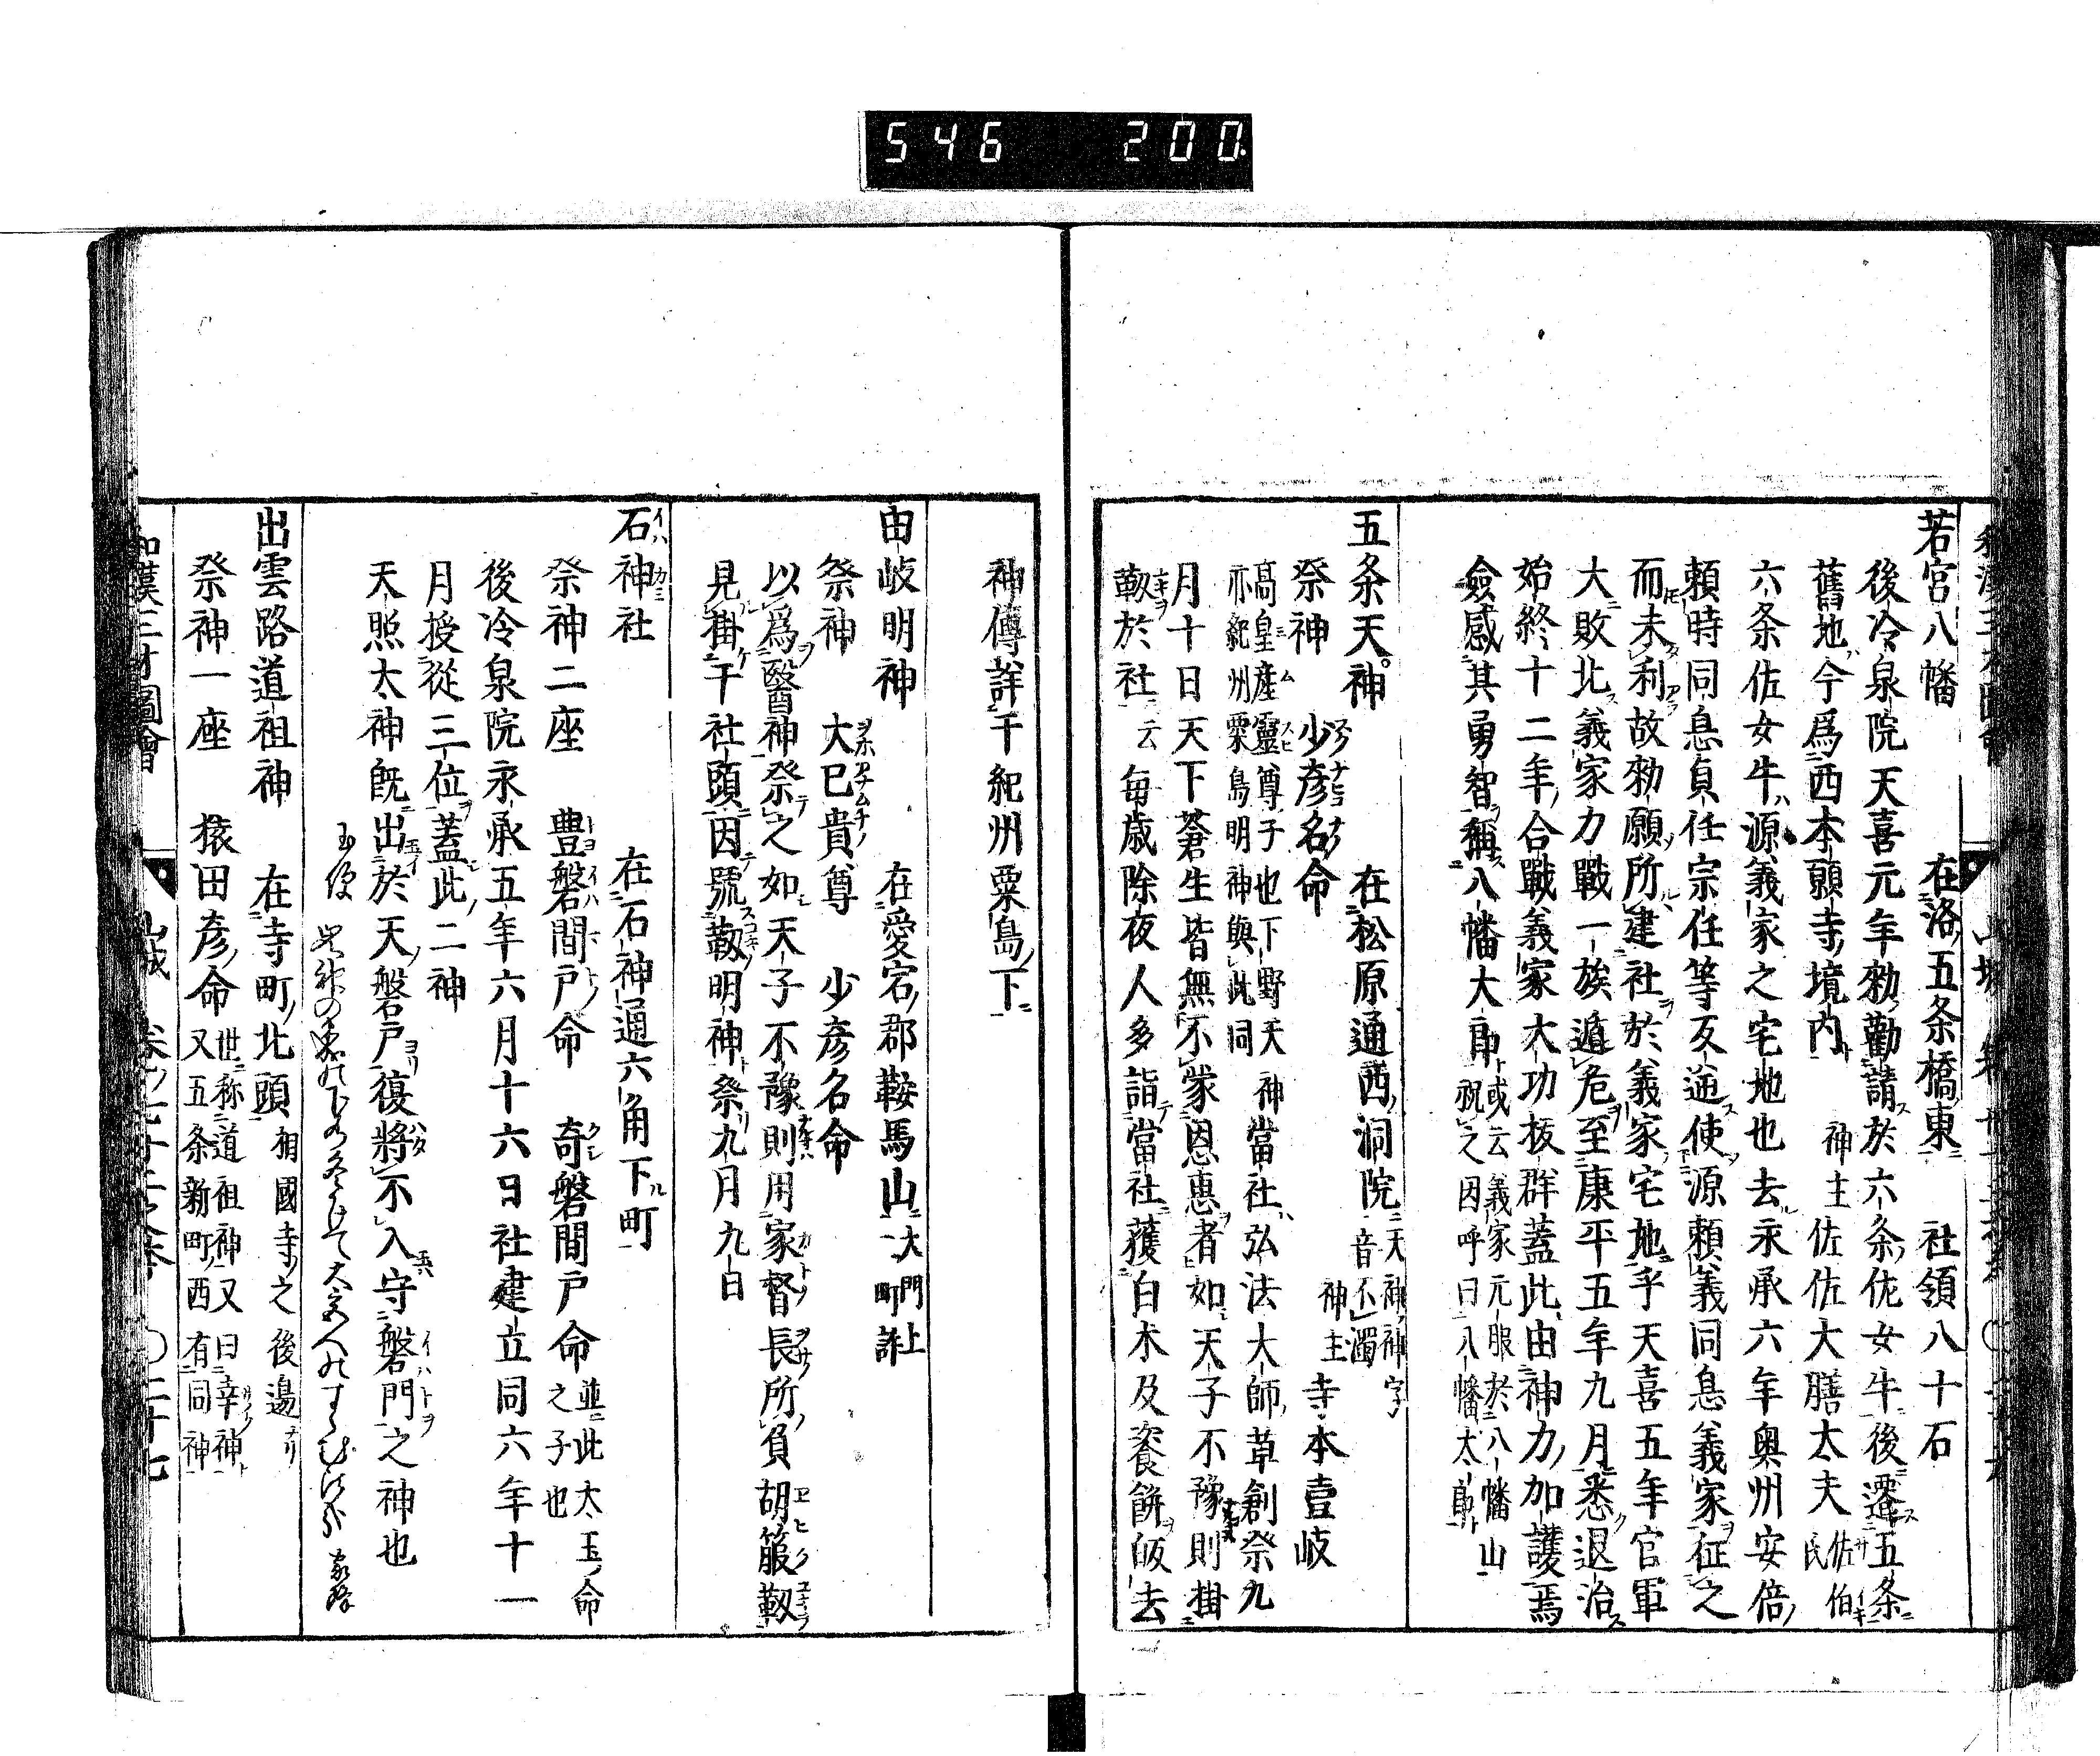 546 200
若宮八幡 在洛五条橋東 社領八十石
後冷泉院天喜元年勅勸請於六条佐女牛後遷五条
舊地今爲西本願寺境内 神主 佐佐大膳太夫 佐伯氏
六条佐女牛源義家之宅地也去永承六年奥州安倍
頼時同息貞任宗任等反逆使源頼義同息義家征之
而未利故勅願所建社於義家宅地乎天喜五年官軍
大敗北義家力戰一族遁危至康平五年九月悉退治
始終十二年合戰義家大功抜群蓋此由神力加護焉
僉感其勇智稱八幡大郎 或云義家元服於八幡山
祝之因呼曰八幡太郎
五条天神 在松原通西洞院 天神神字
音不濁
祭神 少彦名命 神主 寺本壹岐
高皇産靈尊子也下野天神當社弘法大師草創祭九
亦紀州粟島明神與此同
月十日天下蒼生皆無不蒙恩惠者如天子不豫則掛
靫於社云毎歳除夜人多詣當社獲白朮及餈餅皈去
神傳詳于紀州粟島下
由岐明神 在愛宕郡鞍馬山 大門上
町許
祭神 大已貴尊 少彦名命
以爲醫神祭之如天子不豫則用家督長所負胡簶靫
見掛于社頭因號靫明神祭九月九日
石神社 在石神通六角下町
祭神二座 豊磐間戸命 奇磐間戸命 並此太玉命
之子也
後冷泉院永承五年六月十六日社建立同六年十一
月授從三位蓋此二神
天照太神既出於天磐戸復將不入守磐門之神也
出雲路道祖神 在寺町北頭 相國寺之後邊
祭神一座 猿田彦命 世称道祖神又曰幸神
又五条新町西有同神
和漢三才圖會 山城 卷之七十二之本 〇二十七